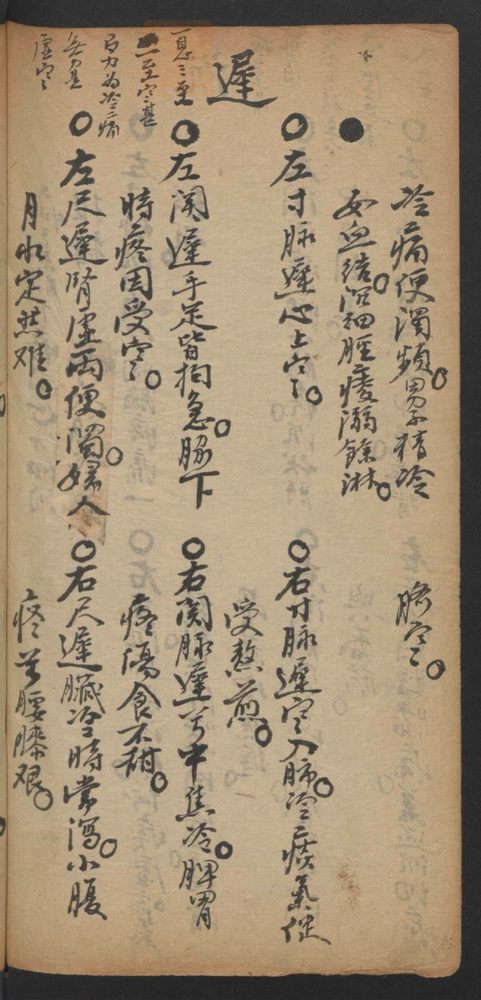 冷痛便濁頻男子精冷
女血結沉細脛痠溺餘淋
臍寒
遲
一息三至
二至寒甚
有力為冷痛
無力是
虛寒
左寸脉遲心上寒
右寸脉遲寒入肺冷痰氣促
受熬煎
左関遲手足皆拘急脇下
時疼因受寒
右関脉遲兮中焦冷脾胃
疼傷食不甜
左尺遲腎虛両便濁婦人
月水定然难
右尺遲臟冷時常瀉小腹
疼兮腰膝艰